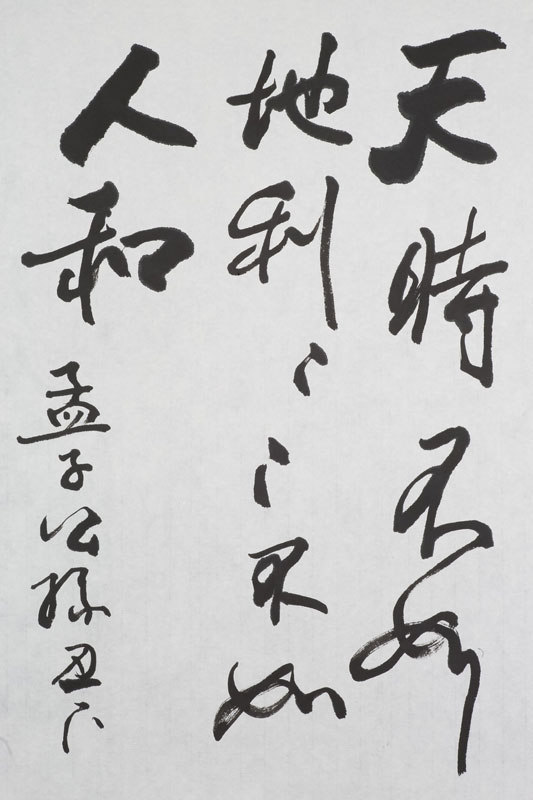 天時不如
地利〻〻不如
人和
孟子公孫丑下